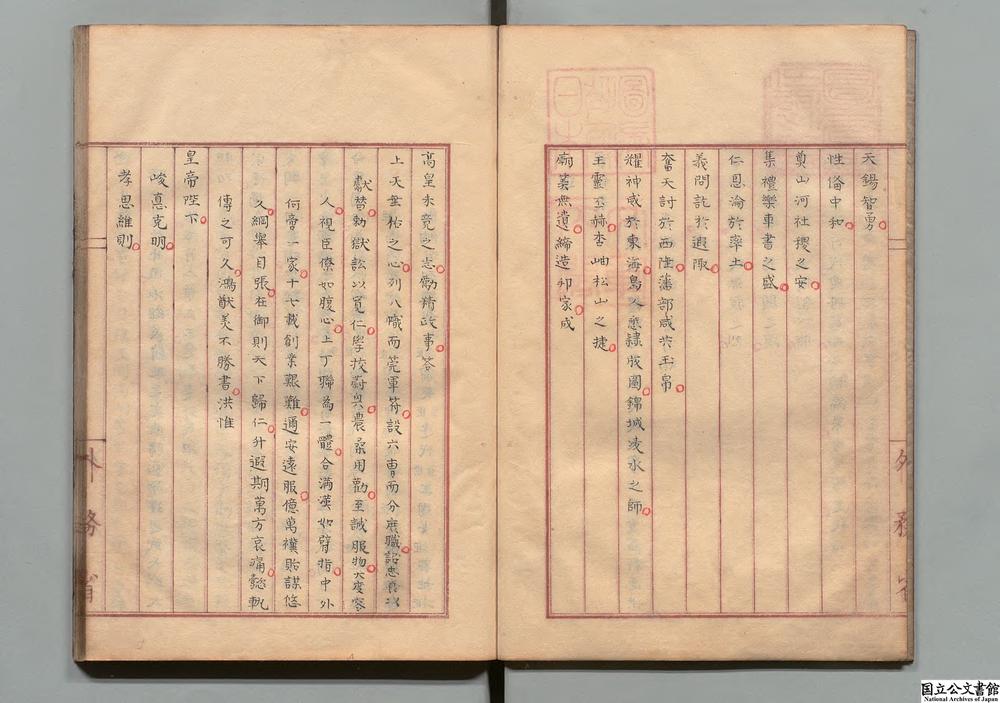 天錫智勇
性僃中和
奠山河社稷之安
集禮樂車書之盛
仁恩淪於率土
義問訖於遐陬
奮天討於西陸藩部咸共玉帛
耀神威於東海島人悉隸版圖錦城淩水之師
王靈丕赫杏岫松山之捷
廟筭無遺締造邦家成
高皇未竟之志勵精政事荅
上天垂佑之心列八幟而筦軍符設六曹而分庶職諮忠良以
獻替勅獄訟以寬仁學挍蔚興農桑用勸至誠服物大度容
人視臣僚如腹心上丁聯為一體合滿漢如臂指中外
何啻一家十七載創業艱難邇安遠服億萬禩貽謀悠
久綱舉目張在御則天下歸仁升遐期萬方哀痛懿軌
傳之可久鴻猷美不勝書洪惟
皇帝陛下
峻悳克明
孝思維則
外務省
国立公文書館
National Archives of Japan